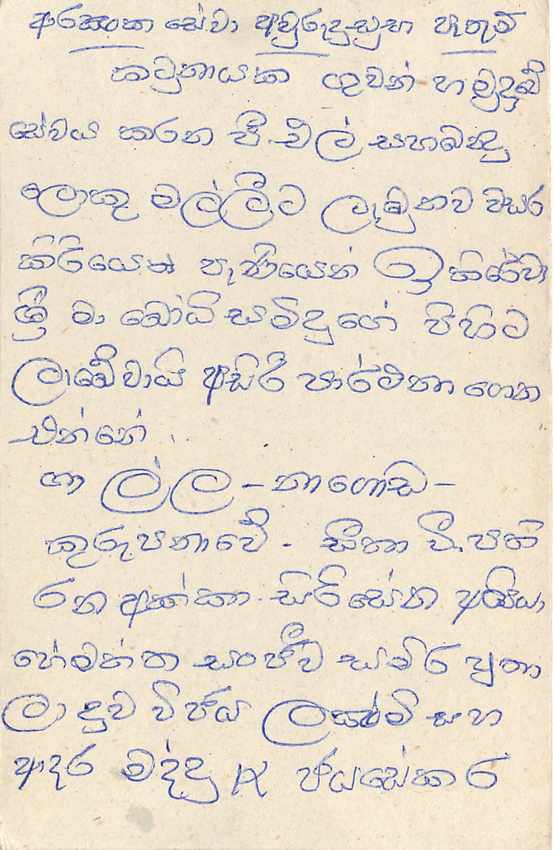 ආරක්‍ෂක සේවා අවුරුදු සුභ පැතුම්
කටුනායක ගුවන් හමුදාවේ
සේවය කරන ජී. එල් සහබන්දු
ලොකු මල්ලීට ලැබුනව වසර
කිරියෙන් පැණියෙන් ඉතිරේවා
ශ්‍රී මා බෝධි සමිදුගේ පිහිට
ලැබේවායි අසිරි පාර්ථනා ගෙන
එන්නේ.
ගාල්ල - නාගොඩ -
කුරුපනාවේ - සීතා වී. පති
රන අක්කා. සිරිසේන අයියා
හේමන්ත සංජීව සමිර පුතා
ලා දුව විජය ලක්‍ෂ්මි සහ
ආදර මද්දු K ජයසේකර